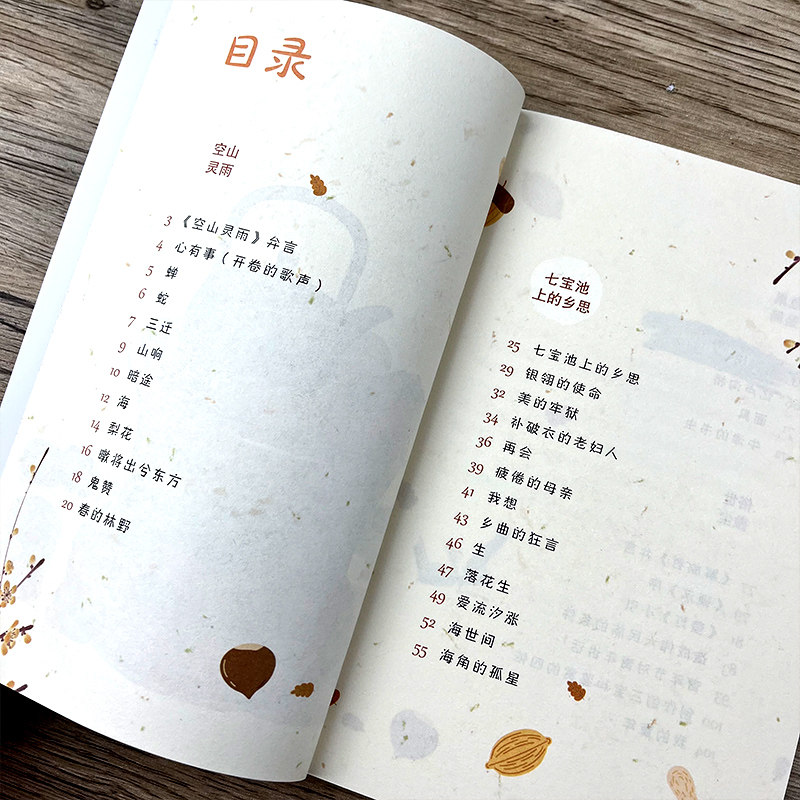 目录
空山
灵雨
3 《空山灵雨》弁言
4 心有事（开卷的歌声）
5 蝉
6 蛇
7 三迁
9 山响
10 暗途
12 海
14 梨花
16 暾将出兮东方
18 鬼赞
20 春的林野
七宝池
上的乡思
25 七宝池上的乡思
29 银翎的使命
32 美的牢狱
34 补破衣的老妇人
36 再会
39 疲倦的母亲
41 我想
43 乡曲的狂言
46 生
47 落花生
49 爱流汐涨
52 海世间
55 海角的孤星